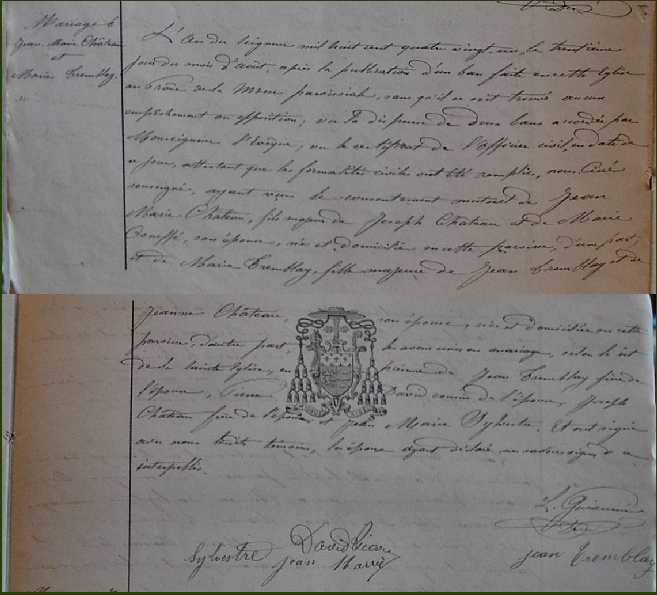 Mariage 6
Jean Marie Château
et
Marie Tremblay.
L'An du Seigneur mil huit cent quatre vingt un, le trentième
jour du mois d'août, après la publication d'un ban faite en cette Eglise
au Prône de la Messe paroissiale, sans qu'il se soit trouvé aucun
empêchement ou opposition; vu la dispense de deux bans accordée par
Monseigneur l'Evêque, vu le certificat de l'Officier civil, en date de
ce jour, attestant que les formalités civiles ont été remplies, nous Curé
soussigné, ayant reçu le consentement mutuel de Jean
Marie Château, fils majeur de Joseph Château et de Marie
son épouse, née et domicilié en cette paroisse, d'une part,
et de Marie Tremblay, fille majeure de Jean Tremblay et de
Jeanne Château, son épouse, née et domiciliée en cette
paroisse, d'autre part, les avons unis en mariage, selon le rit
de la Sainte Eglise, en présence de Jean Tremblay frère de
l'épouse, Pierre David cousin de l'épouse, Joseph
Château frère de l'époux, et Jean Marie Sylvestre. Et ont signé
avec nous les dits témoins, les époux ayant déclaré ne savoir signer de ce
interpellés.
Sylvestre
David Pierre
jean Marie
jean Tremblay